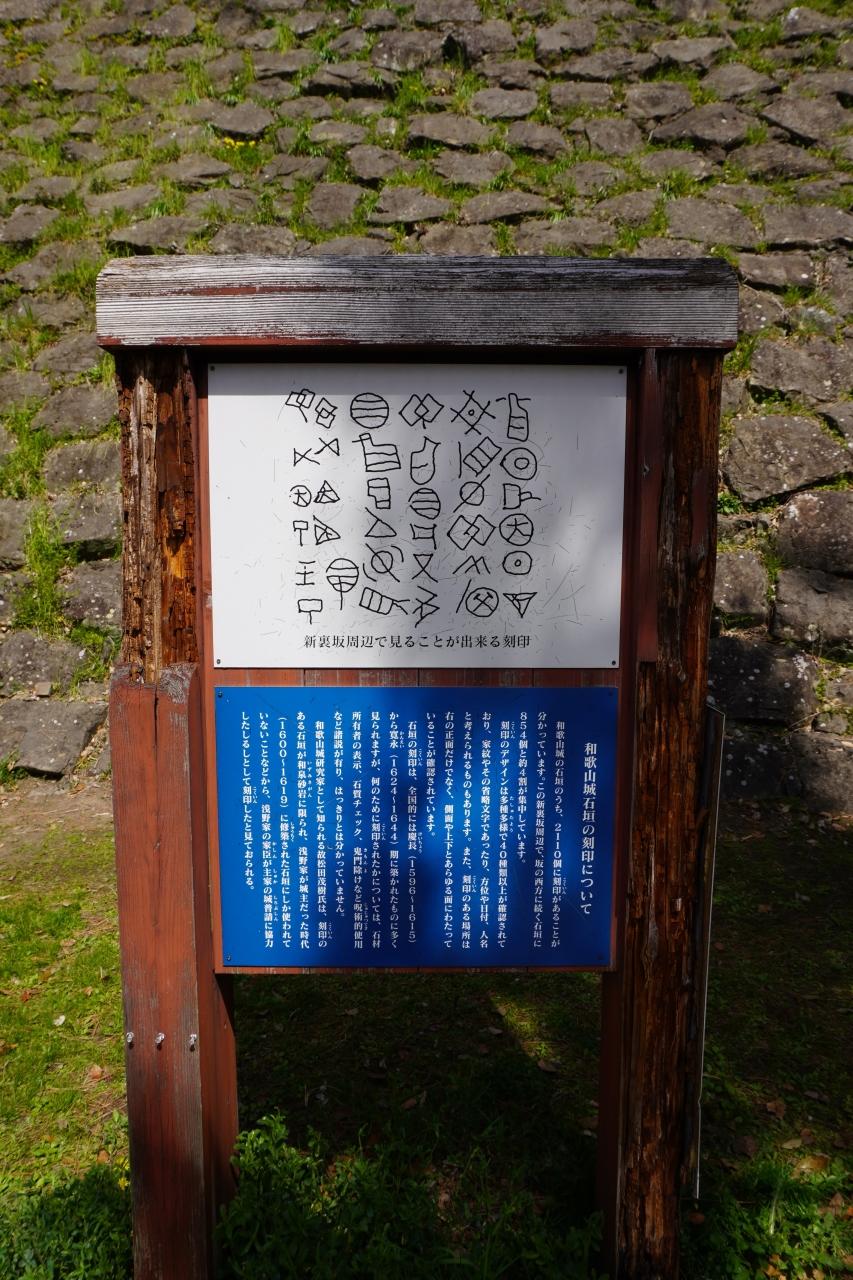 新裏坂周辺で見ることが出来る刻印
和歌山城石垣の刻印について
和歌山城の石垣のうち、2110個に刻印があることが
分かっています。この新裏坂周辺で、坂の西方に続く石垣に
854個と約4割が集中しています。
刻印のデザインは多種多様で40種類以上が確認されて
おり、家紋やその省略文字であったり、方位や日付、人名
と考えられるものもあります。また、刻印のある場所は
右の正面だけでなく、側面や上下とあらゆる面にわたって
いることが確認されています。
石垣の刻印は、全国的には慶長(1596〜1615)
から寛永(1624〜1644)期に築かれたものに多く
見られますが、何のために刻印されたかについては、石材
所有者の表示、石質チェック、鬼門除けなど呪術的使用
など諸説が有り、はっきりとは分かっていません。
和歌山城研究家として知られる故松田茂樹氏は、刻印の
ある石垣が和泉砂岩に限られ、浅野家が城主だった時代
(1600〜1619)に修築された石垣にしか使われて
いないことなどから、浅野家の家臣が主家の城普請に協力
したしるしとして刻印したと見ておられる。